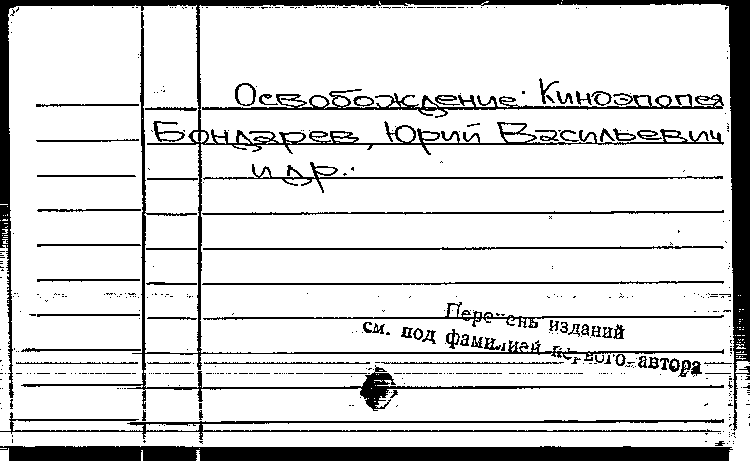 Освобождение: Киноэпопея
Бондарев, Юрий Васильевич
и др.
Перечень изданий
см. под фамилией первого автора